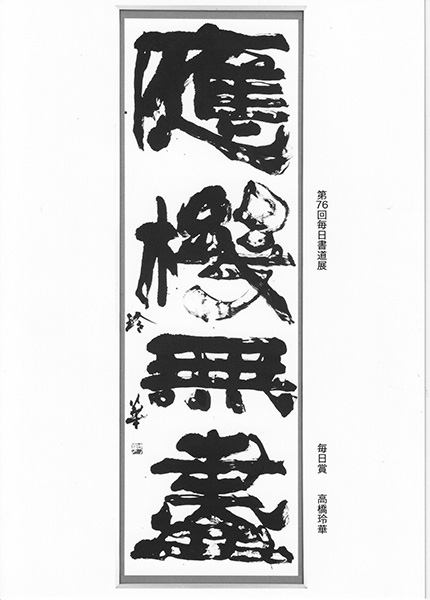 第76回毎日書道展
毎日賞　高橋玲華
應機無盡
玲華